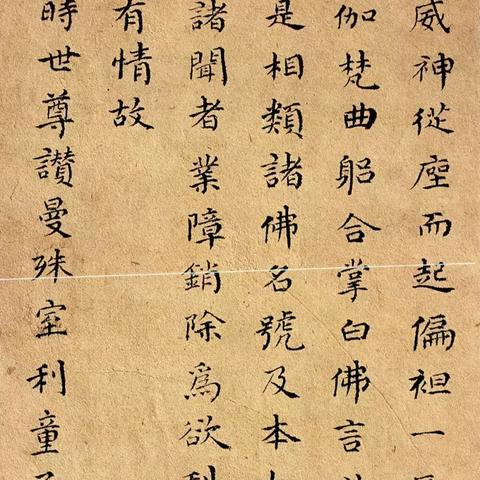 威神從座而起偏袒一
伽梵曲躬合掌白佛言
是相類諸佛名號及本
諸聞者業障銷除為欲利
有情故
時世尊讚曼殊室利童